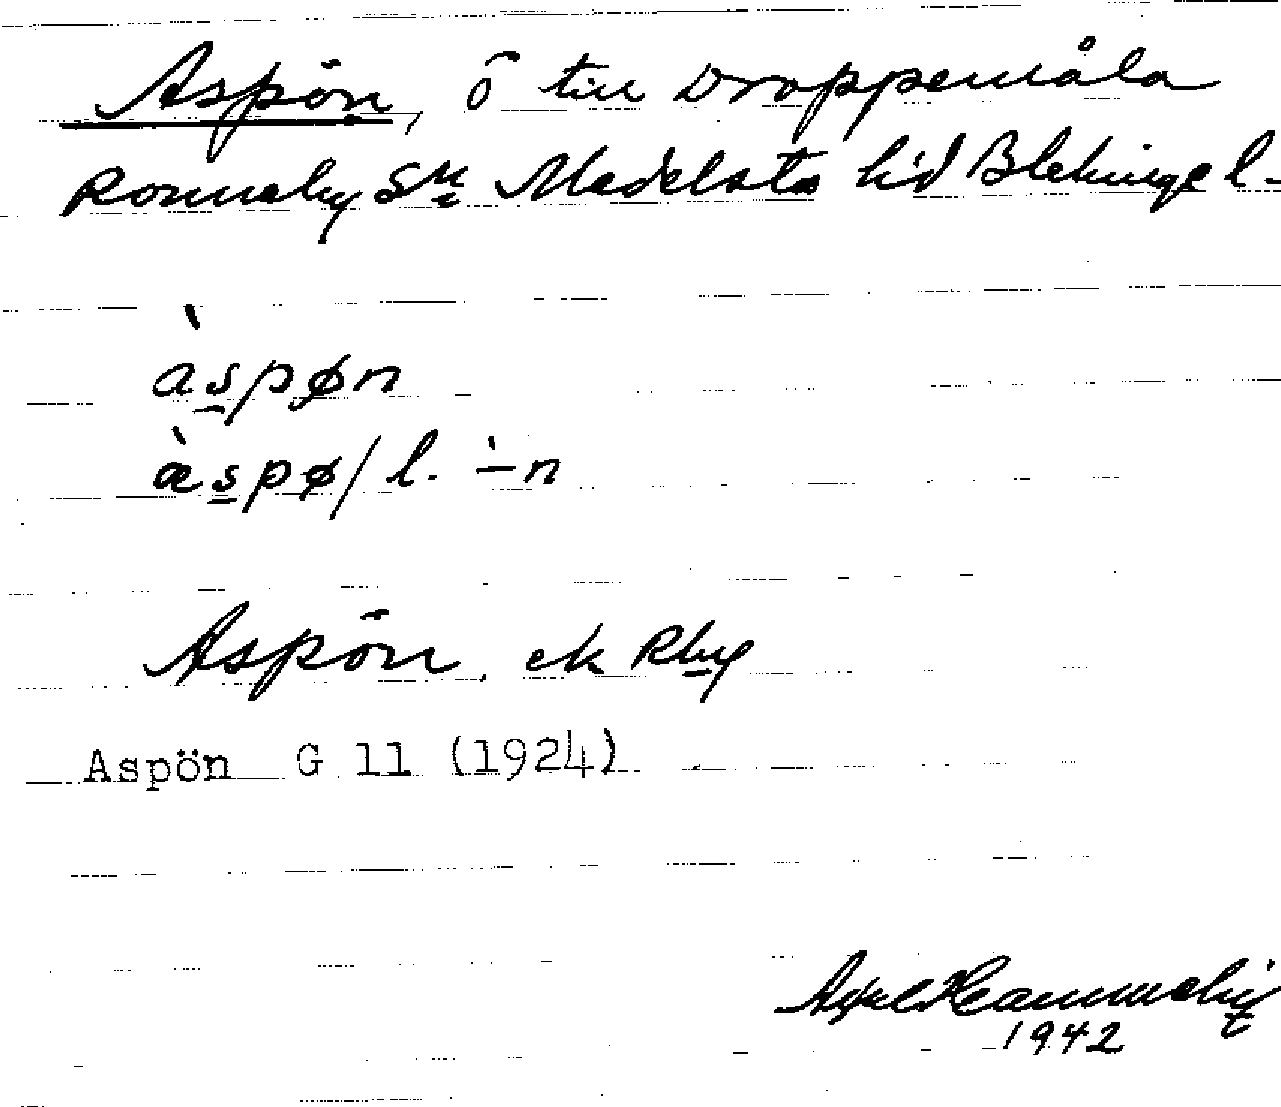 Aspön, ö till Droppemåla
Ronneby Sn Medelsta hd Blekinge l.
àspøn
àspø/l. -̀n
Aspön, ek Rby
Aspön G 11 (1924)
Axel
1942